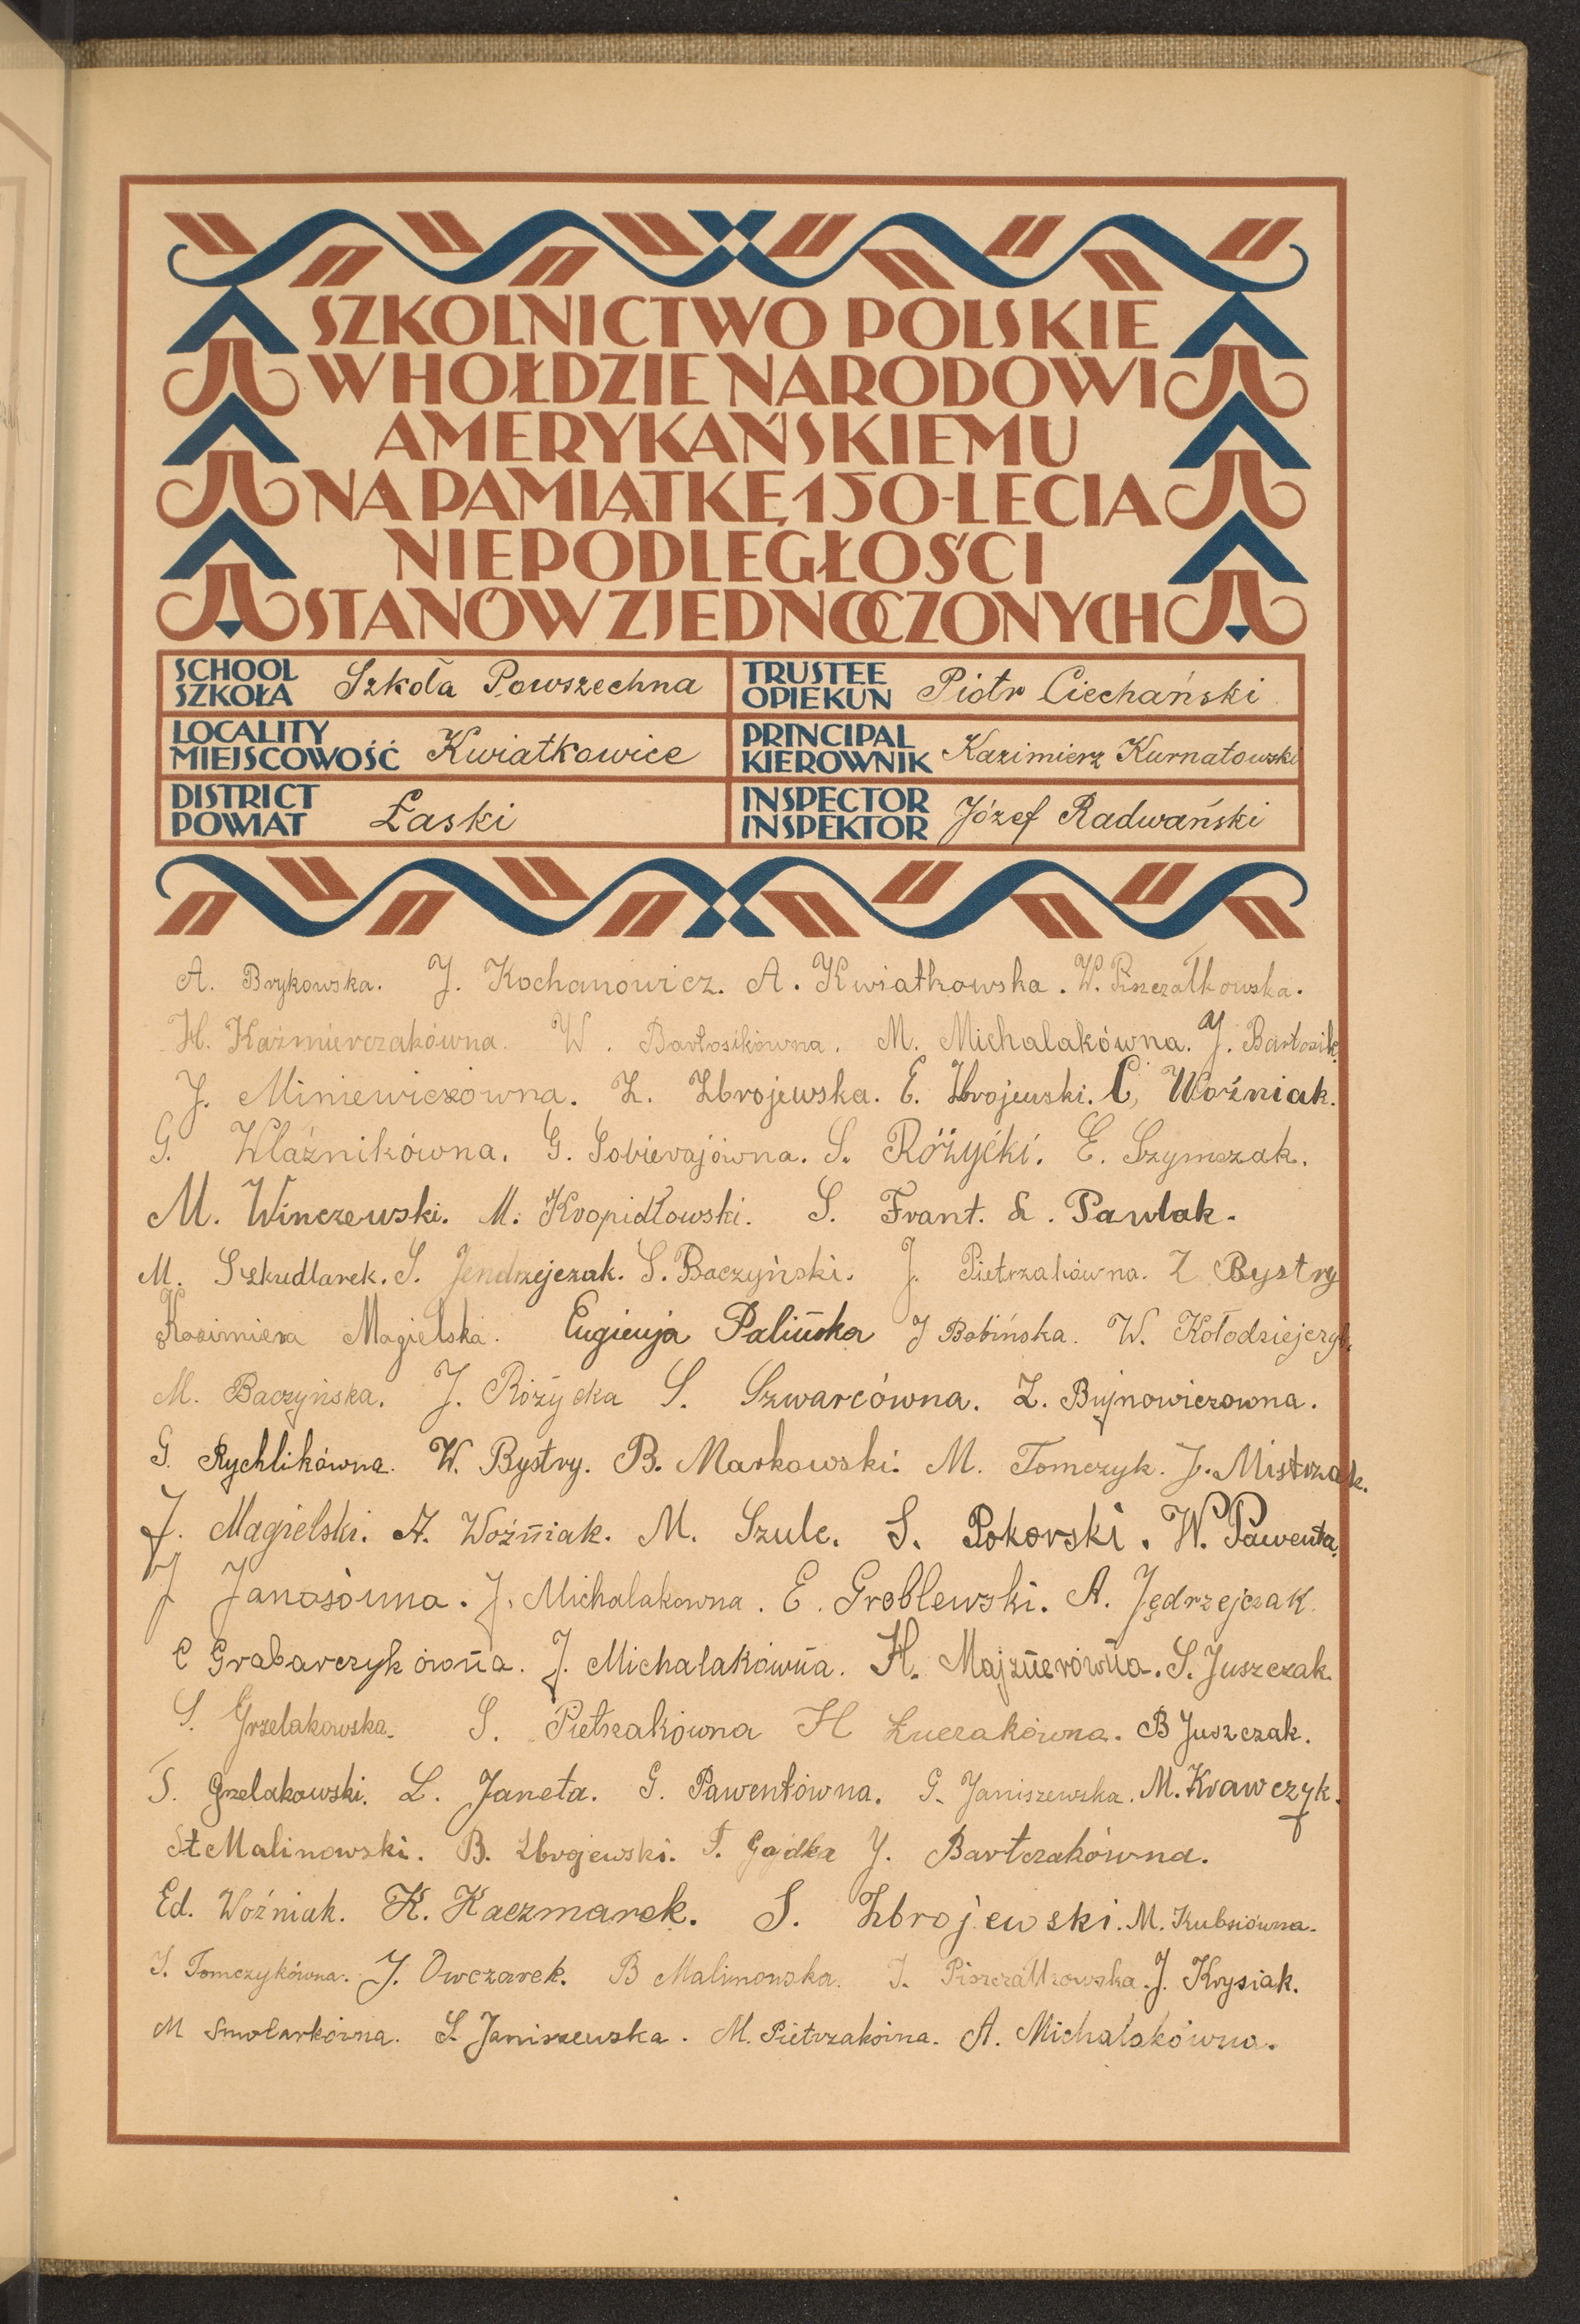 SZKOLNICTWO POLSKIE
W HOŁDZIE NARODOWI
AMERYKAŃSKIEMU
NA PAMIĄTKĘ 150-LECIA
NIEPODLEGŁOŚCI
STANÓW ZJEDNOCZONYCH
SCHOOL SZKOŁA Szkoła Powszechna
TRUSTEE OPIEKUN Piotr Ciechański
LOCALITY MIEJSCOWOŚĆ Kwiatkowice
PRINCIPAL KIEROWNIK Kazimierz Kurnatowski
DISTRICT POWIAT Łaski
INSPECTOR INSPEKTOR Józef Radwański
A. Brykowska. J. Kochanowicz. A. Kwiatkowska. W. Piszczałkowska.
H. Kaźmierczakówna. W. Bartosikówna. M. Michalakówna. J. Bartosik.
J. Miniewiczówna. Z. Zbrojewska. E. Zbrojewski. C. Woźniak.
G. Wlaźnikówna. G. Sobierajówna. S. Różycki. E. Szymczak.
M. Winczewski. M. Kropidłowski. S. Frant. L. Pawlak.
M. Szkudlarek. S. Jendrzejczak. S. Baczyński. J. Pietrzakówna. Z Bystry
Kazimiera Magielska. Eugienja Palińska J Bobińska. W. Kołodziejczyk.
M. Baczyńska. J. Różycka S. Szwarcówna. Z. Bujnowiczowna.
G. Rychlikówna. W. Bystry. B. Markowski. M. Tomczyk. J. Mistrzak.
J. Magielski. A. Woźniak. M. Szulc. S. Pokorski. W. Pawenta.
J Janasówna. J. Michalakowna. E. Groblewski. A. Jędrzejczak.
C Grabarczykówna. J. Michalakówna. H. Majznerówna. S. Juszczak.
S. Grzelakowska. S. Pietrzakówna H Łuczakówna. B Juszczak.
T. Grzelakowski. L. Janeta. G. Pawentówna. G. Janiszewska. M. Krawczyk.
St Malinowski. B. Zbrojewski. T. Gajdka J. Bartczakówna.
Ed. Woźniak. K. Kaczmarek. S. Zbrojewski. M. Kubsiówna.
S. Tomczykówna. J. Owczarek. B Malinowska. J. Piszczałkowska. J. Krysiak.
M Smolarkówna. S. Janiszewska. M. Pietrzakówna. A. Michalakówna.